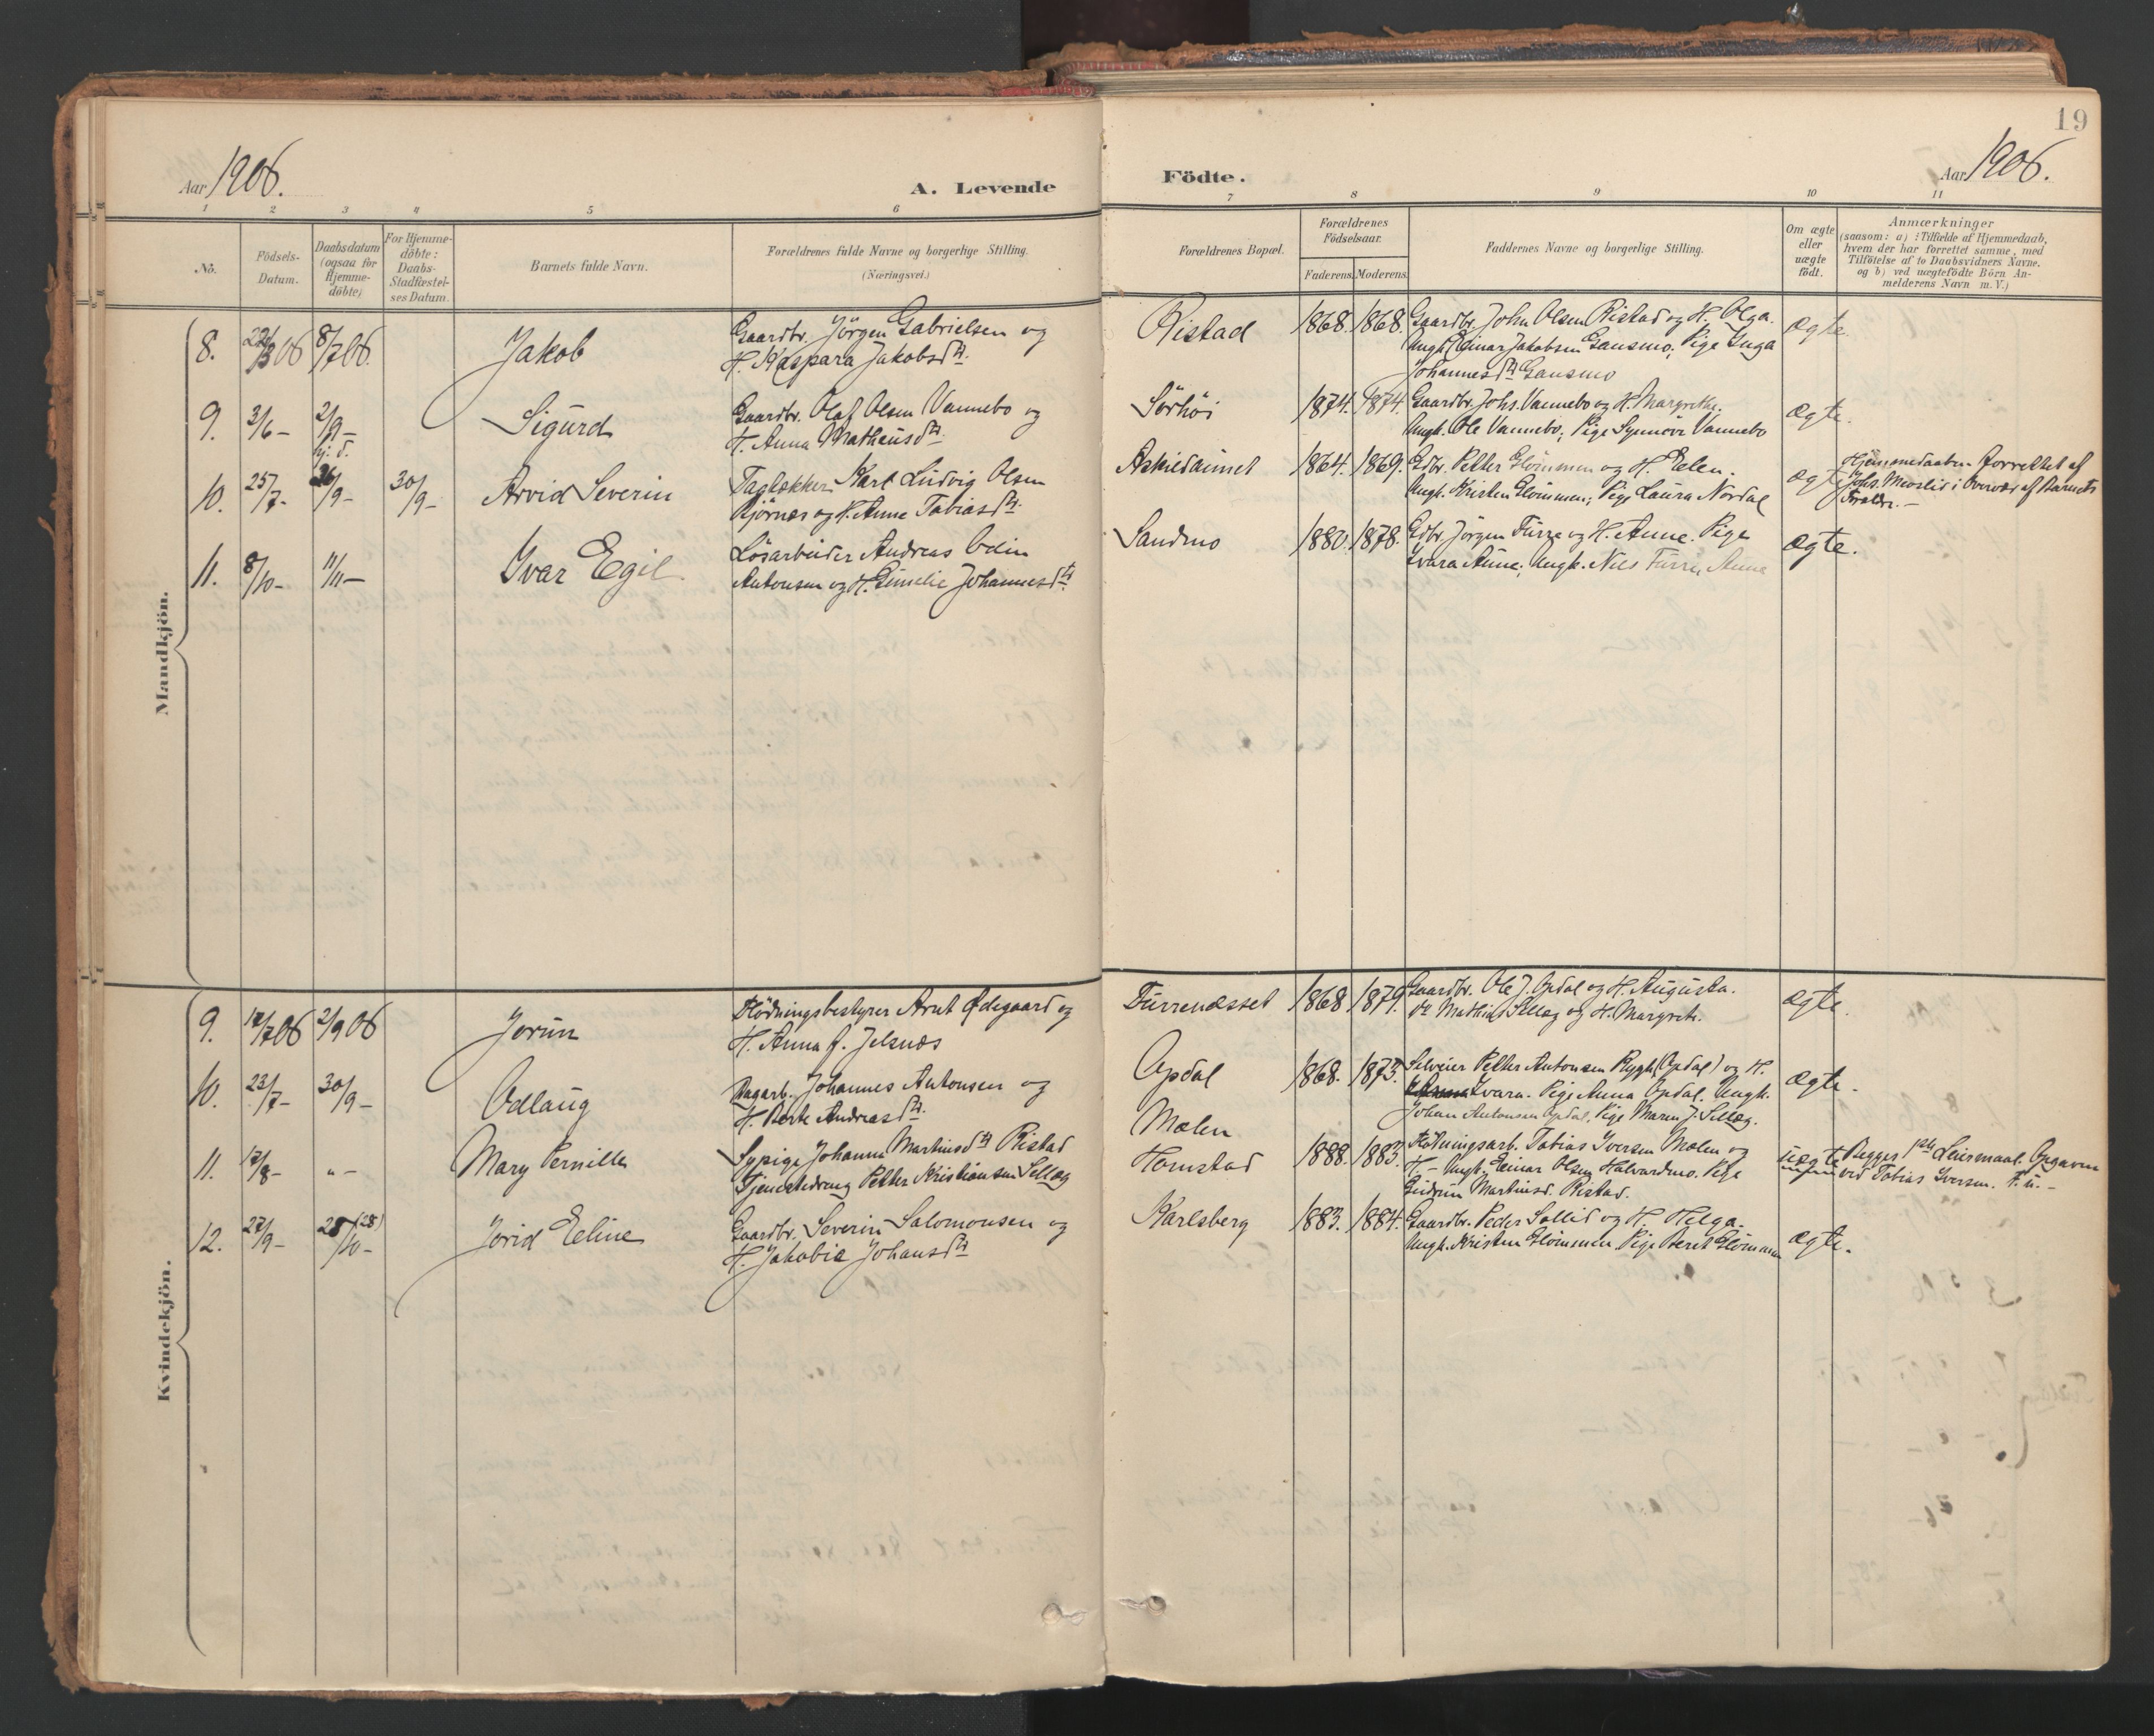 19
Aar 1906.
A. Levende
Födte.
Aar 1906.
1 2 3 4 5 6 7 8 9 10 11
No.
Födsels-
Datum.
Daabsdatum
(ogsaa for
Hjemme-
döbte)
For Hjemme-
döbte:
Daabs-
Stadfæstel-
ses Datum.
Barnets fulde Navn.
Forældrenes fulde Navne og borgerlige Stilling.
(Næringsvei.)
Forældrenes Bopæl.
Forældrenes
Födselsaar.
Faderens.
Moderens.
Faddernes Navne og borgerlige Stilling.
Om ægte
eller
uægte
födt.
Anmærkninger
(saasom: a) i Tilfælde af Hjemmedaab,
hvem der har forrettet samme, med
Tilföielse af to Daabsvidners Navne.
og b) ved uægtefödte Börn An-
melderens Navn m. V.)
Mandkjön.
8. 06 8/7 06. Jakob
Gaardbr. Jörgen Gabrielsen og
H. Kaspara Jakobsdtr.
Ristad 1868. 1868.
Gaardbr. John Olsen Ristad og H. Olga.
Ungk. Einar Jakobsen Gansmo; Pige Inga
Johannesdtr Gansmo
ægte.
9. 3/6 – 2/9 – Sigurd
Gaardbr. Olaf Olsen Vannebo og
H. Anna Matheusdtr.
Sörhöi 1874. 1874.
Gaardbr. Johs. Vannebo og H. Margrethe.
Ungk. Ole Vannebo; Pige Synnöve Vannebo
ægte.
hj. d.
10. 25/7 – 26/9 – 30/9 – Arvid Severin
Tagtækker Karl Ludvig Olsen
Bjørnes og H. Anne Tobiasdtr.
1864. 1869.
Gdbr. Petter Glömmen og H. Elen.
Ungk. Kristen Glömmen; Pige Laura Nordal
ægte
Hjemmedaaben forrettet af
Johs. Moslid i Overvær af Barnets
Forældr. –
11. 8/10 – 11/11 – Ivar Egil
Lösarbeider Andreas Odin
Antonsen og H. Emelie Johannesdtr.
Sandmo 1880. 1878.
Gdbr. Jörgen Furre og H. Anne. Pige
Ivara Aune; Ungk. Nils Furre Aune
ægte.
Kvindekjön.
9. 17/7 06 2/9 06 Jorun
Flödningsbestyrer Arnt Ødegaard og
H. Anna J. Jelsnæs
Furrenæsset 1868 1879.
Gaardbr. Ole J. Opdal og H. Augusta.
do Mathias Sellæg og H. Margrete.
ægte.
10. 23/7 – 30/9 – Odlaug
Dagarb. Johannes Antonsen og
H. Berte Andreasdtr.
Opdal 1868. 1873.
Selveier Petter Antonsen Rygh (Opdal) og H.
Ivara. Pige Anna Opdal. Ungk.
Johan Antonsen Opdal, Pige Maren J. Sellæg.
ægte.
11. 17/8 – " – Mary Pernille
Sypige Johanna Martinsdtr Ristad
Tjenestedreng Petter Kristiansen Sellæg
Mælen
Homstad 1888. 1883.
Flötningsarb. Tobias Iversen Mælen og
H. – Ungk. Einar Olsen Halvardmo. Pige
Gudrun Martinsd. Ristad.
uægte
Begges 1ste Leiermaal. Opgaven
ved Tobias Iversen. F. u. –
12. 27/9 – 28/10 – (28) Jorid Eeline
Gaardbr. Severin Salomonsen og
H. Jakobia Johansdtr
Karlsberg 1883. 1884.
Gaardbr. Peder Sollid og H. Helga.
Ungk. Kristen Glömmen. Pige Beret Glömmen
ægte.